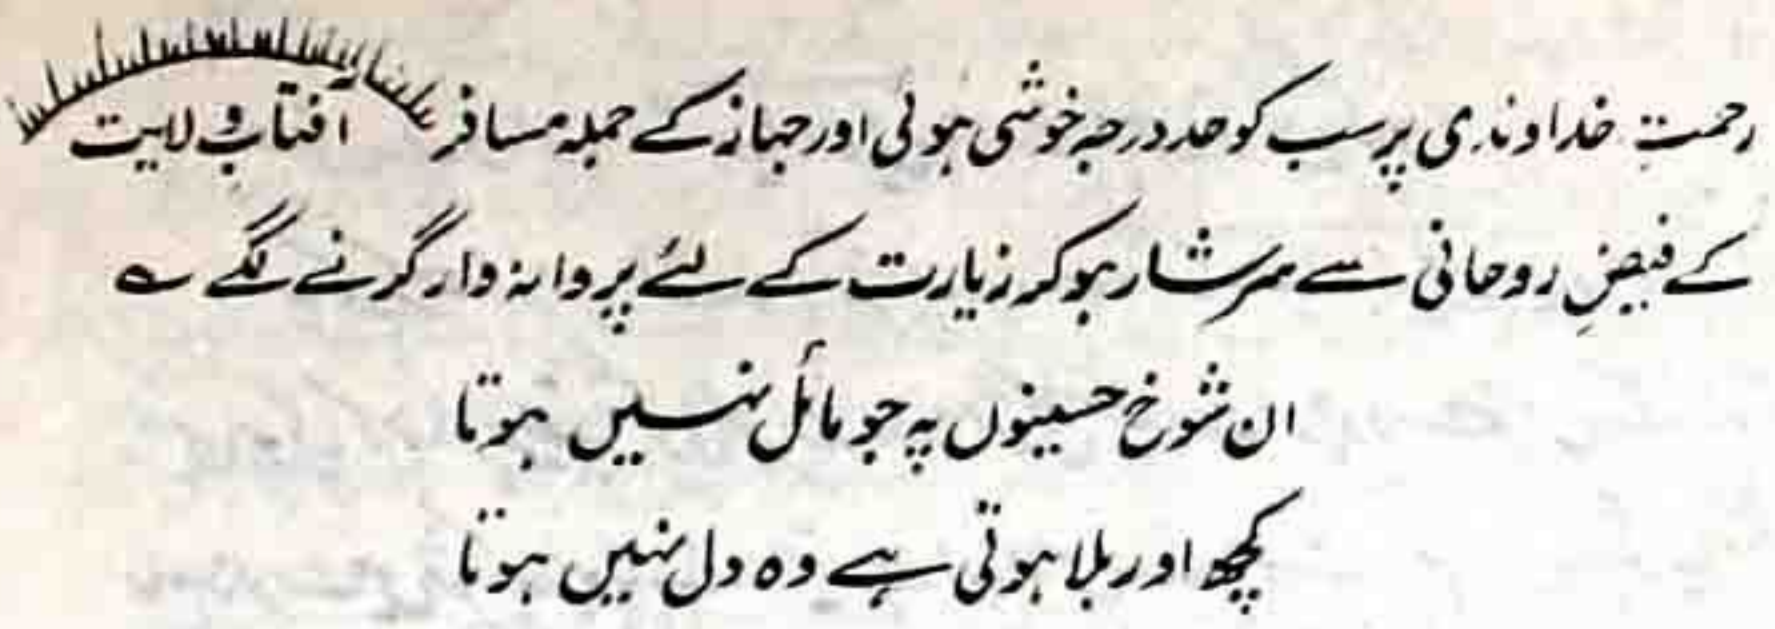 رحمتِ خداوندی پر سب کو حد درجہ خوشی ہوئی اور جہاز کے جملہ مسافر آفتابِ ولایت
کے فیضِ روحانی سے سرشار ہو کر زیارت کے لئے پروانہ وار گرنے لگے ؎
ان شوخ حسینوں پہ جو مائل نہیں ہوتا
کچھ اور بلا ہوتی ہے وہ دل نہیں ہوتا